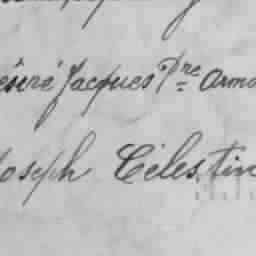 ésiré Jacques Pne Arma
Joseph Célestin